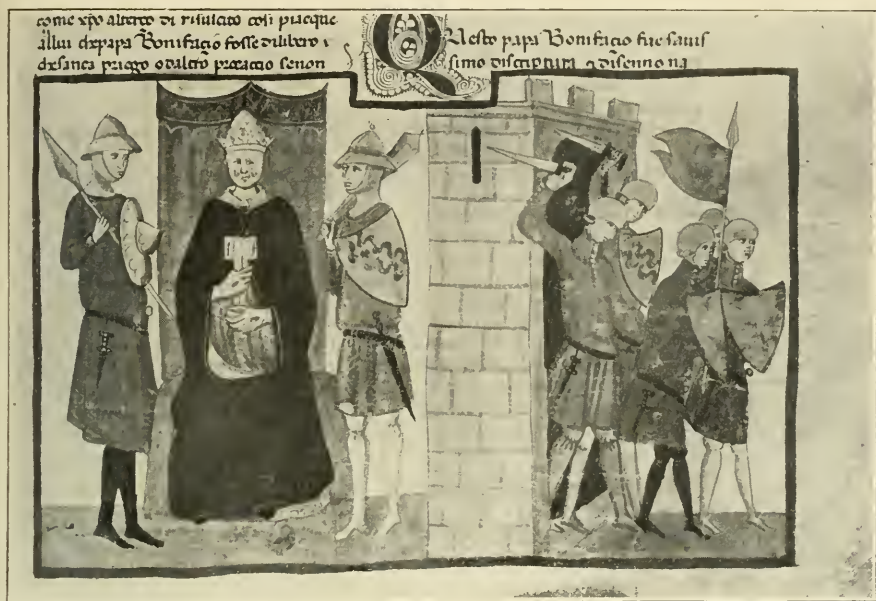 come xpo alterço di risulcito così piacque
allui che papa Bonifacio fosse dilibero
chesança priego o daltro procaccio senon
Questo papa Bonifacio fue savis
simo discriptura & disenno na